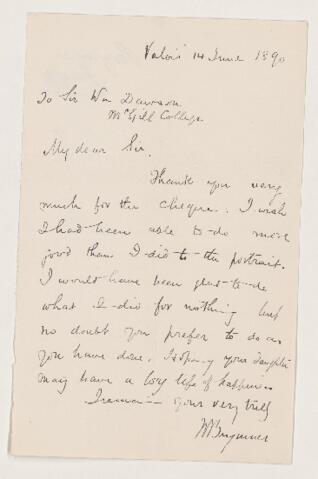 Valois 14 June 1890
To Sir Wm Dawson
McGill College
My dear Sir.
Thank you very
much for the cheque. I wish
I had been able to do more
good than I did to the portrait.
I would have been glad to do
what I did for nothing but
no doubt you prefer to do as
you have done. Hoping your daughter
may have a long life of happiness
I remain yours very truly
W Brymner